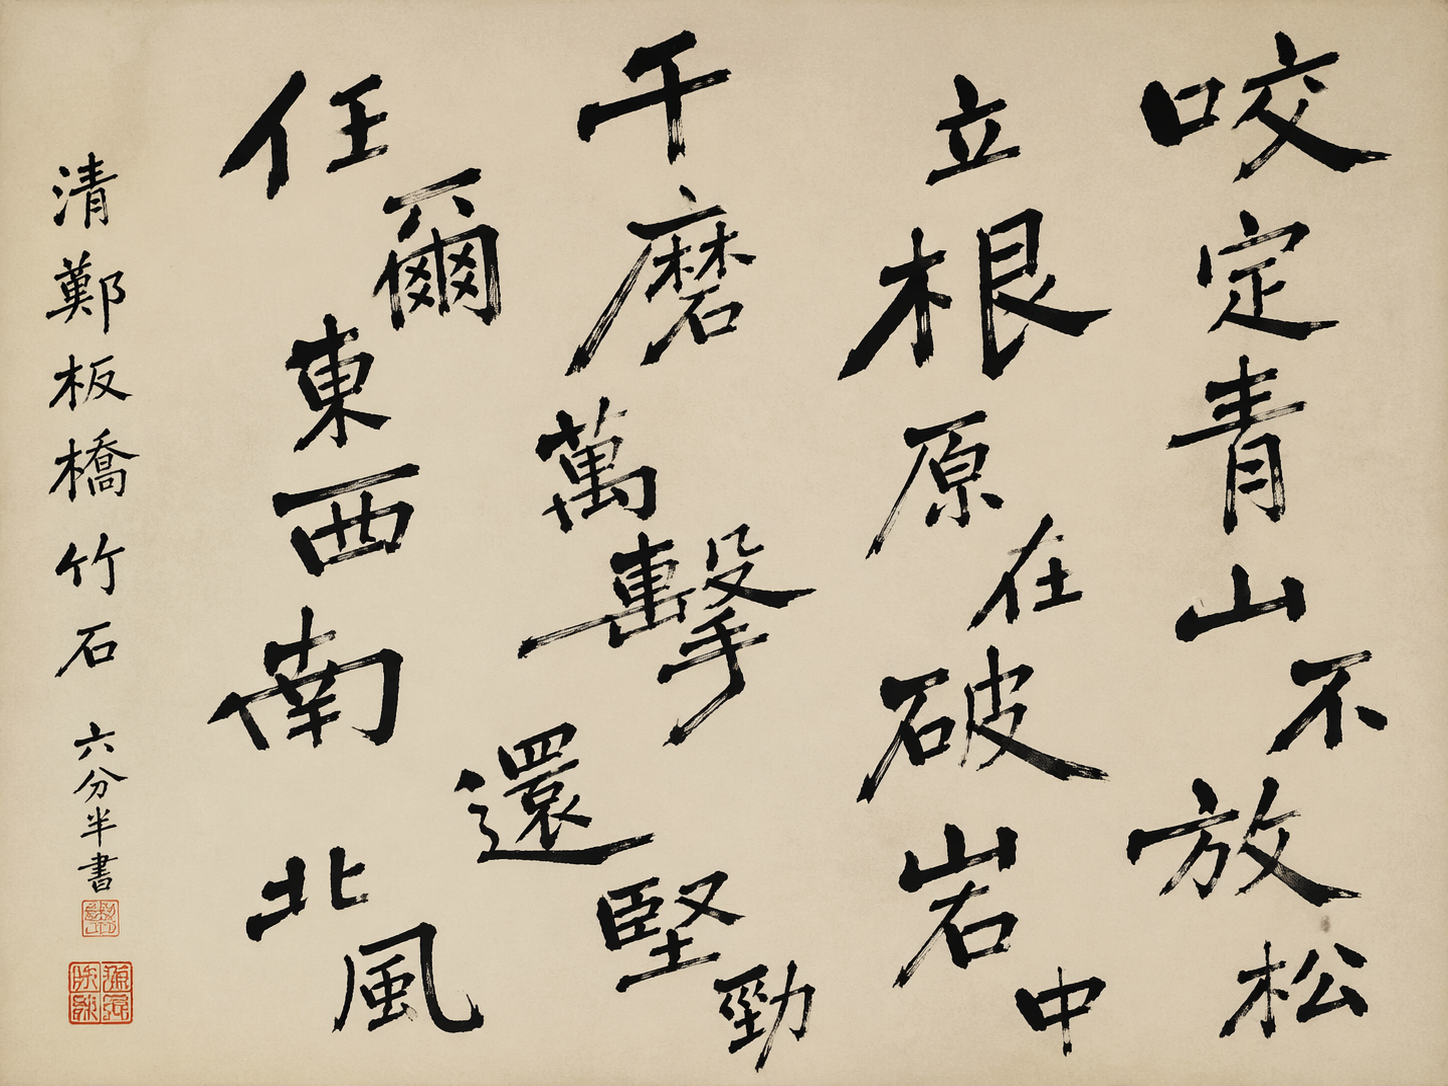 咬定青山不放松
立根原在破岩中
千磨萬擊還堅勁
任爾東西南北風
清鄭板橋竹石 六分半書